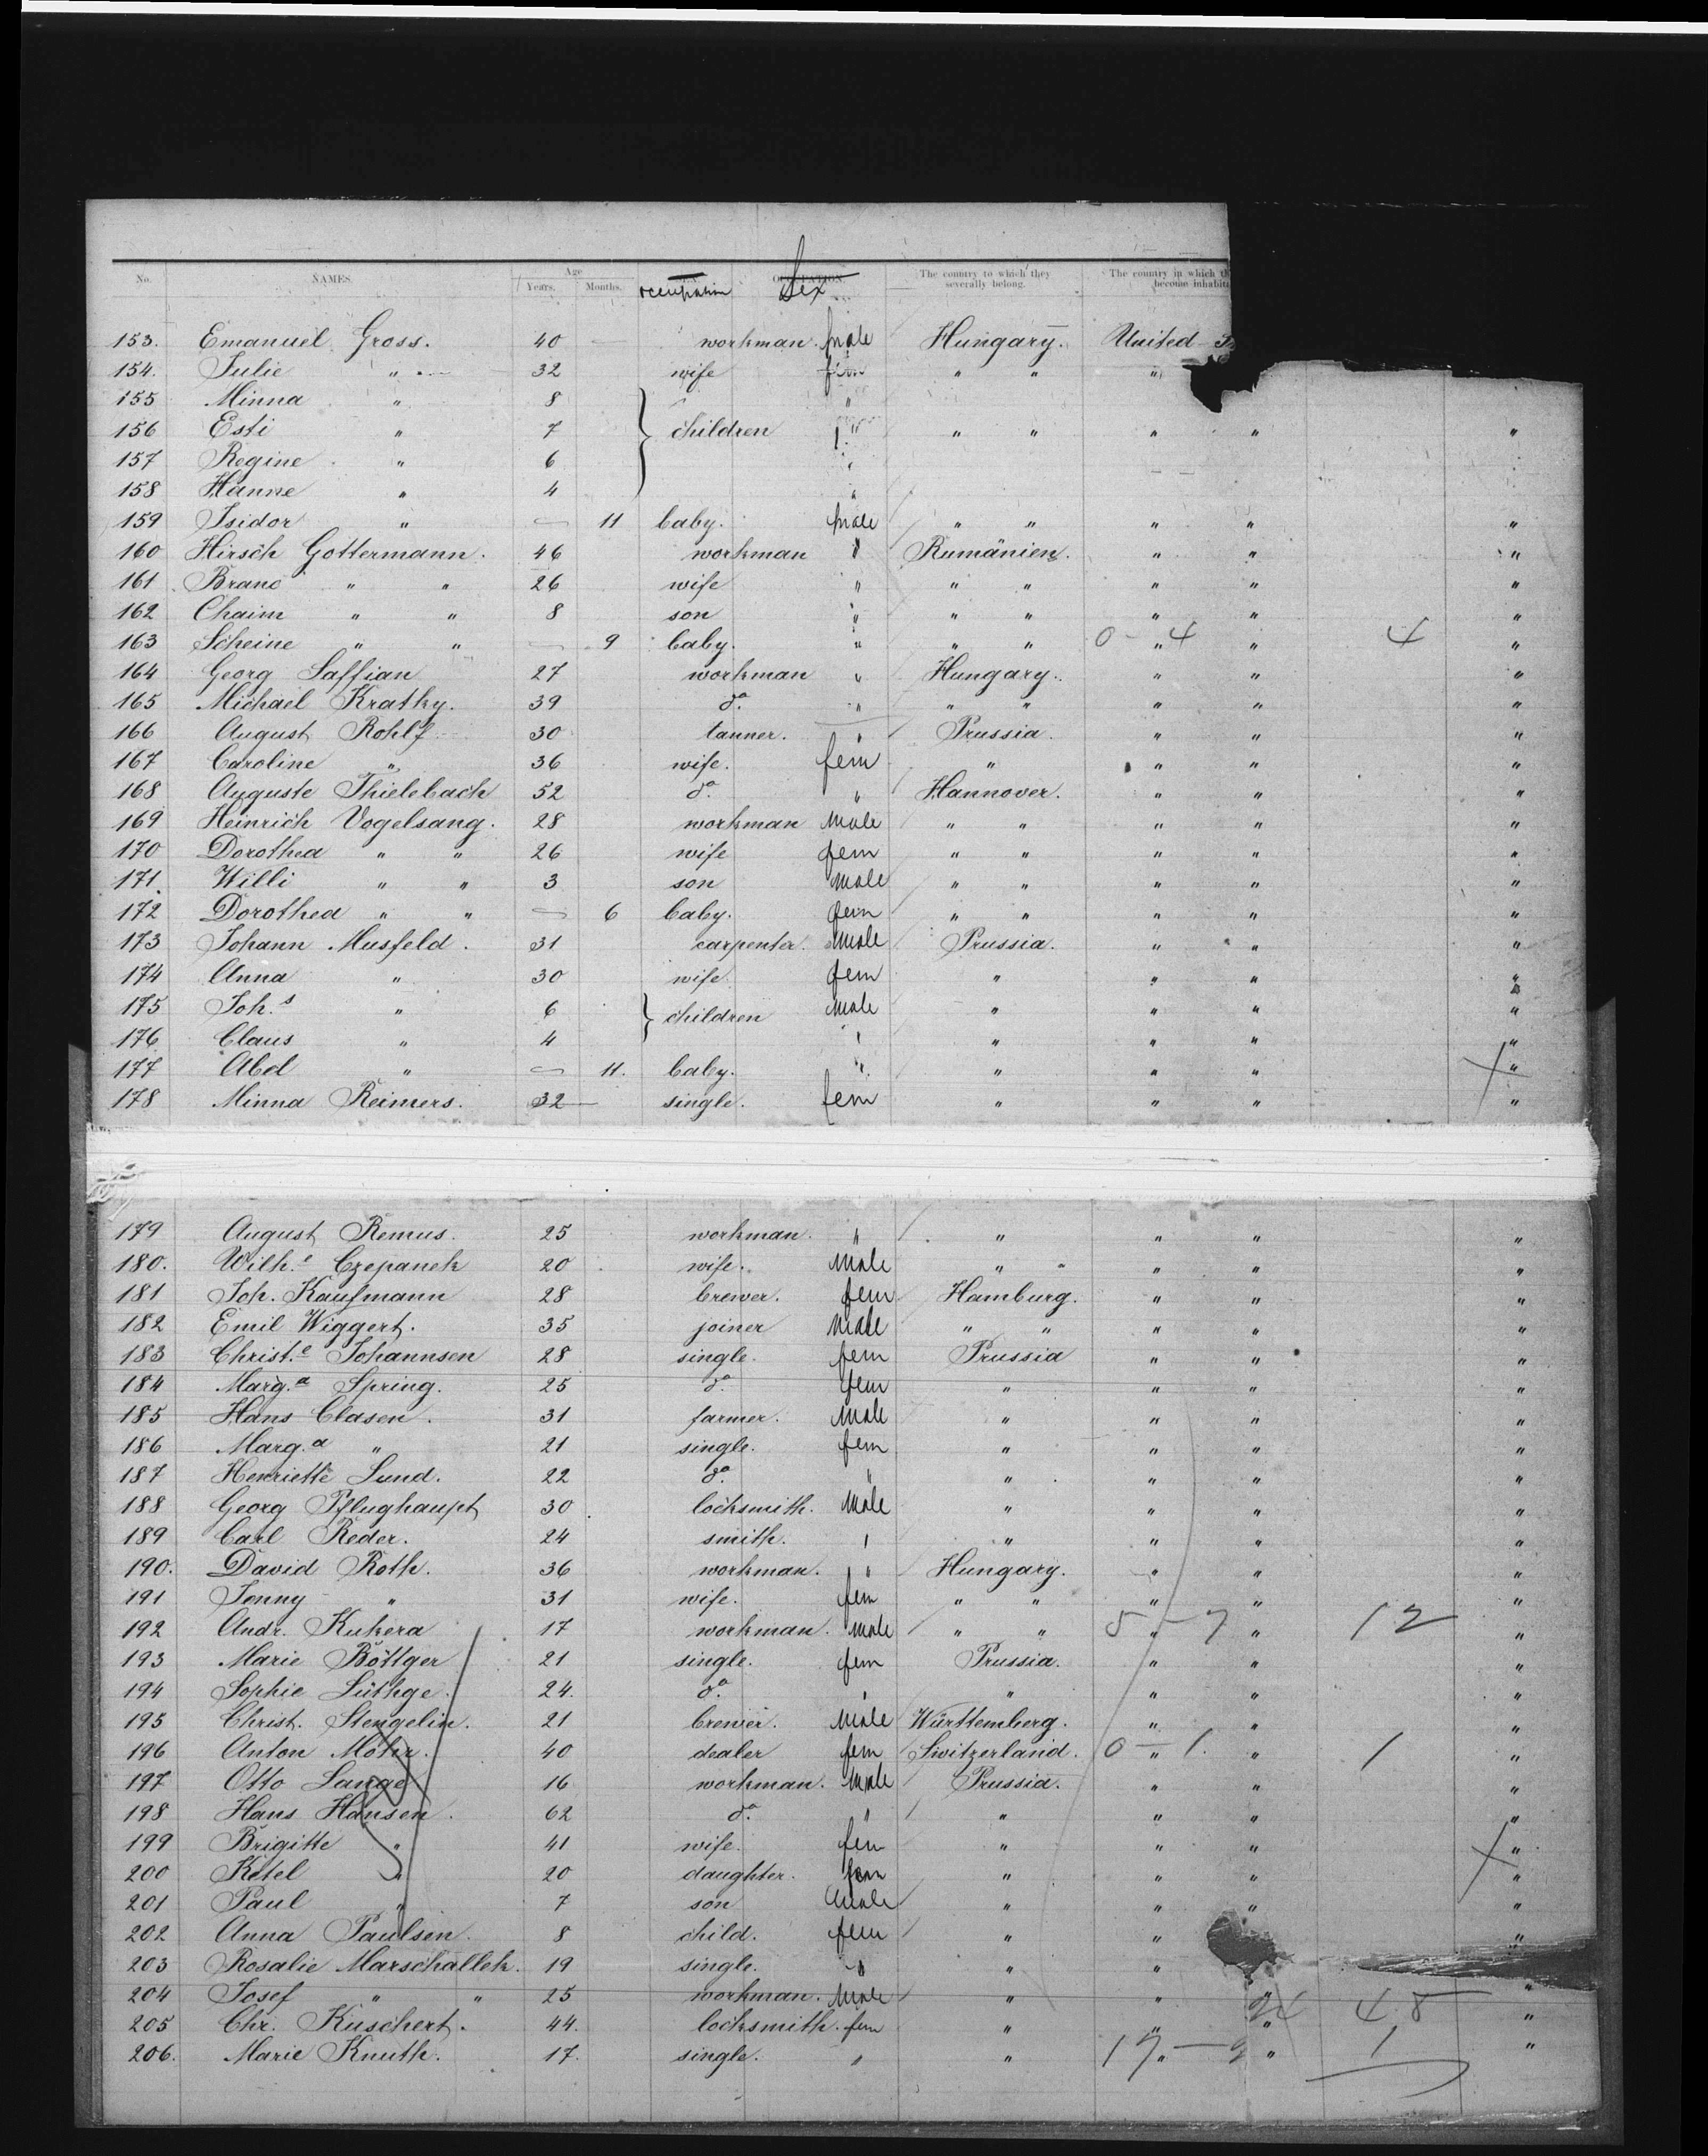 No. NAMES. Age Years. Months. SEX. occupation OCCUPATION. Sex The country to which they severally belong. The country in which th become inhabita
153. Emanuel Gross. 40 — workman. male Hungary. United
154. Julie " 32 wife fem " " "
155 Minna " 8 "
156 Esti " 7 } children " " " " " "
157 Regine " 6 "
158 Hanne " 4 "
159 Isidor " — 11 baby. male " " " " "
160 Hirsch Gottermann. 46 workman " Rumänien. " " "
161 " " 26 wife " " " " " "
162 Chaim " " 8 son " " " " " "
163 Scheine " " — 9 baby. " " " 0 - " 4 " 4 "
164 Georg Saffian 27 workman " Hungary. " " "
165 Michael Krathy. 39 do. " " " " " "
166 August Rohlf 30 tanner. " Prussia. " " "
167 Caroline " 36 wife. fem " " " "
168 Auguste Thielebach 52 do. " Hannover. " " "
169 Heinrich Vogelsang. 28 workman male " " " " "
170 Dorothea " " 26 wife fem " " " " "
171. Willi " " 3 son male " " " " "
172 Dorothea " " — 6 baby. fem " " " " "
173 Johann Musfeld. 31 carpenter. male Prussia. " " "
174 Anna " 30 wife. fem " " " "
175 Joh.s " 6 } children male " " " "
176 Claus " 4 " " " " "
177 Abel " — 11. baby. " " " " "
178 Minna Reimers. 32 — single. fem " " " "
179 August Remus. 25 workman. " " " " "
180. Wilh.e Czepanek 20 wife. male " " " " "
181 Joh. Kaufmann 28 brewer. fem Hamburg. " " "
182 Emil Wiggert. 35 joiner male " " " " "
183 Christ.e Johannsen 28 single. fem Prussia " " "
184 Marg.a Spring. 25 do. fem " " " "
185 Hans Clasen. 31 farmer. male " " " "
186 Marg.a " 21 single. fem " " " "
187 Henriette Lund. 22 do. " " " " "
188 Georg Pflughaupt 30 locksmith. male " " " "
189 Carl Reder. 24 smith. " " " " "
190. David Roth. 36 workman. " Hungary. " " "
191 Jenny " 31 wife. fem " " " " "
192 Andr. Kukera 17 workman. male " " 5 " - 7 " 12 "
193 Marie Böttger 21 single. fem Prussia. " " "
194 Sophie Lüthge. 24. do. " " " " "
195 Christ. Stengelin. 21 brewer. male Württemberg. " " "
196 Anton 40 dealer fem Switzerland. 0 — " 1. " 1 "
197 Otto Lange 16 workman. male Prussia. " " "
198 Hans Hansen. 62 do. " " " " "
199 Brigitte " 41 wife. fem " " " "
200 Ketel " 20 daughter. fem " " " "
201 Paul " 7 son male " " " "
202 Anna Paulsen. 8 child. fem " " "
203 Rosalie Marschallek. 19 single. " " "
204 Josef " " 25 workman. male " " " "
205 Chr. Kuschert. 44. locksmith. fem " " 24 48 "
206. Marie Knuth. 17. single. " " 17 " — " 1 "